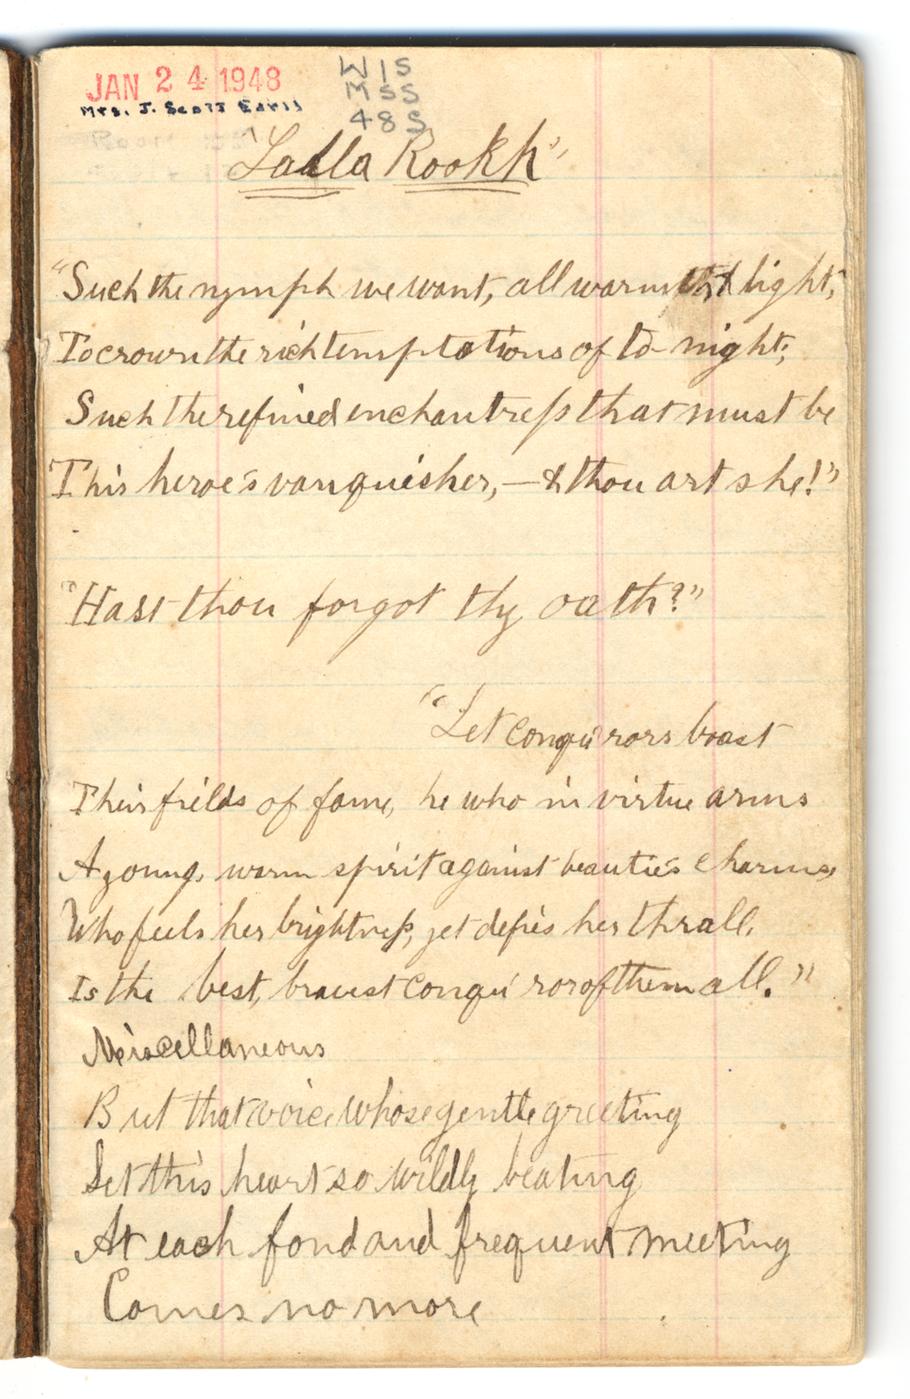 JAN 24 1948
Mrs. J. Scott Davis
WIS
MSS
48S
"Lalla Rookh"
"Such the nymph we want, all warmth & light,
To crown the rich temptations of to-night;
Such the refined enchantress that must be
This heroe's vanquisher, — & thou art she!"
"Hast thou forgot thy oath?"
"Let conqu'rors boast
Their fields of fame, he who in virtue arms
A young, warm spirit against beautie's charms,
Who feels her brightness, yet defies her thrall,
Is the best, bravest conqu'ror of them all."
Miscellaneous
But that voice whose gentle greeting
Set this heart so wildly beating
At each fond and frequent meeting
Comes no more